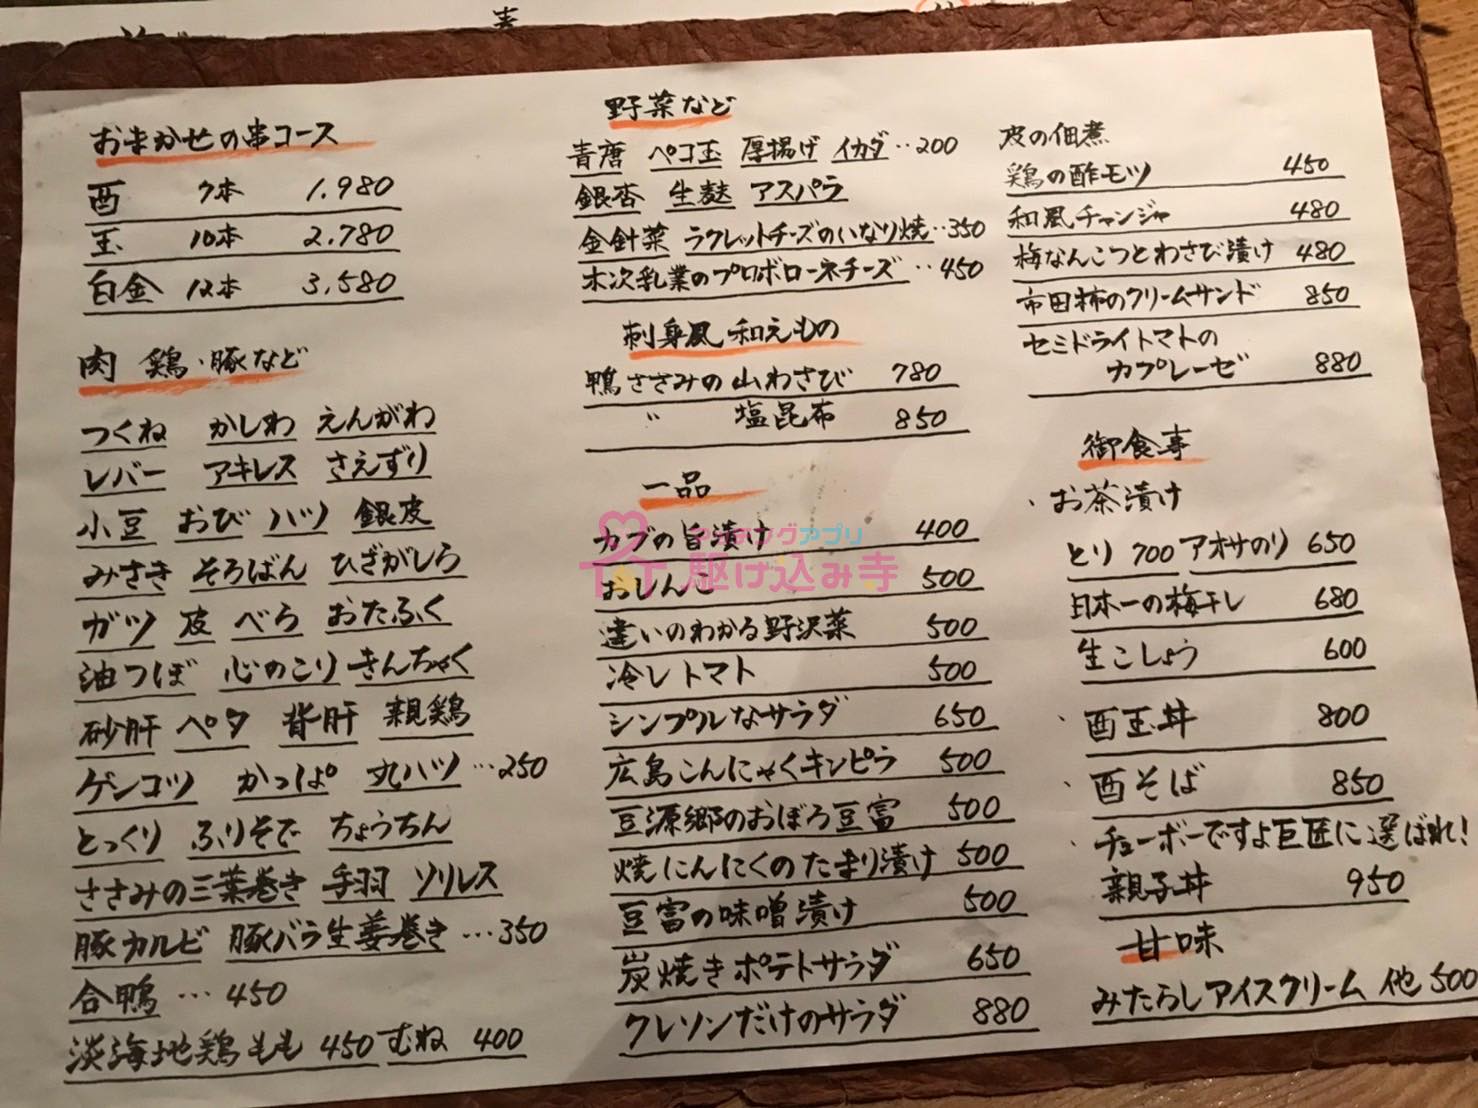 おまかせの串コース
酉 7本 1.980
玉 10本 2.780
白金 12本 3,580
肉 鶏・豚など
つくね かしわ えんがわ
レバー アキレス さえずり
小豆 おび ハツ 銀皮
みさき そろばん ひざがしら
ガツ 皮 べら おたふく
油つぼ 心のこり きんちゃく
砂肝 ペタ 背肝 親鶏
ゲンコツ かっぱ 丸ハツ …250
とっくり ふりそで ちょうちん
ささみの三葉巻き 手羽 ソリレス
豚カルビ 豚バラ生姜巻き …350
合鴨 … 450
淡海地鶏 もも 450 むね 400
野菜など
青唐 ペコ玉 厚揚げ イカダ ‥200
銀杏 生麩 アスパラ
金針菜 ラクレットチーズのいなり焼 ‥350
木次乳業のプロボローネチーズ ‥450
刺身風 和えもの
鴨ささみの山わさび 780
〃 塩昆布 850
一品
カブの旨漬け 400
おしんこ 500
違いのわかる野沢菜 500
冷しトマト 500
シンプルなサラダ 650
広島こんにゃくキンピラ 500
豆源郷のおぼろ豆富 500
焼にんにくのたまり漬け 500
豆富の味噌漬け 500
炭焼きポテトサラダ 650
クレソンだけのサラダ 880
皮の佃煮
鶏の酢モツ 450
和風チャンジャ 480
梅なんこつとわさび漬け 480
市田柿のクリームサンド 850
セミドライトマトの
カプレーゼ 880
御食事
・お茶漬け
とり 700 アオサのり 650
日本一の梅干し 680
生こしょう 600
・酉玉丼 800
・酉そば 850
・チューボーですよ巨匠に選ばれ!
親子丼 950
甘味
みたらしアイスクリーム 他 500
マッチングアプリ
駆け込み寺